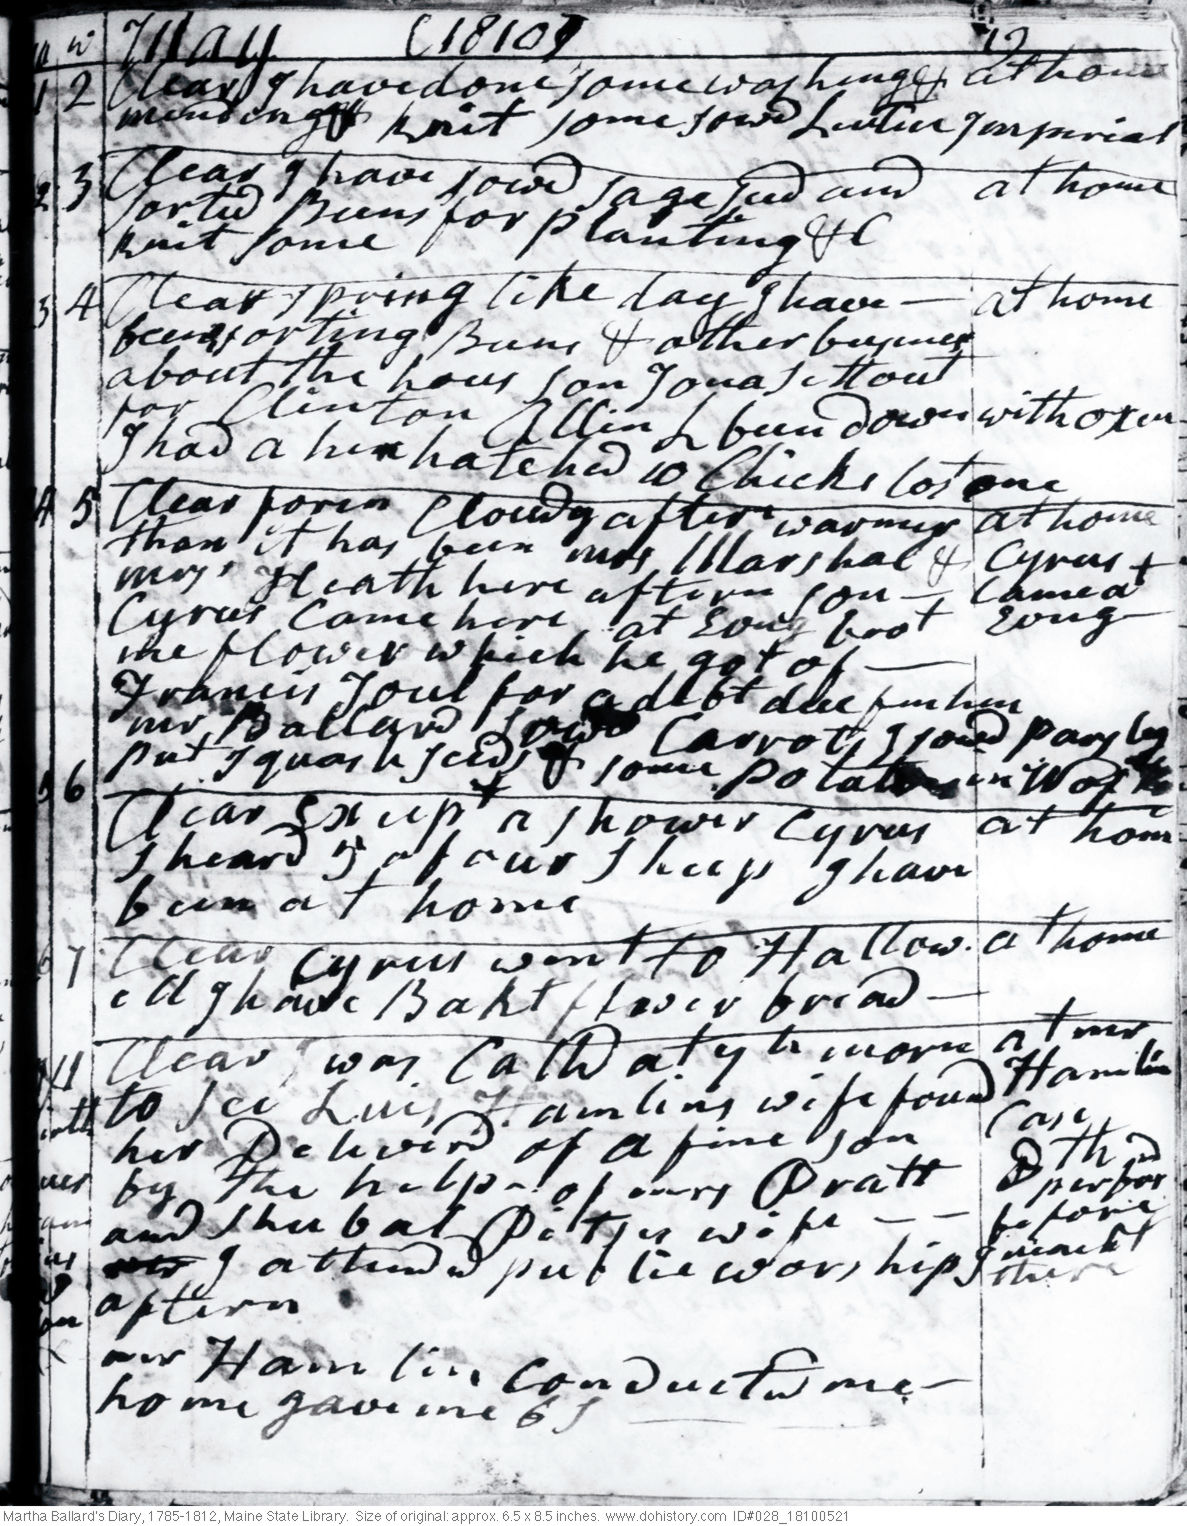 m w May (1810) 12
1 2 Clear I have done some washing & at home
mending & knit some sowd Lettice Imperial
2 3 Clear I have sowd sage seed and at home
sorted Beens for planting &C
knit some
3 4 Clear spring like day I have — at home
been sorting Beens & other business
about the hous son Jonas sett out
for Clinton Ellin L been down with oxen
I had a hen hatched 10 Chicks lost one
4 5 Clear foren Cloudy aftern warmer at home
than it has been mrs Marshal & Cyrus +
mrs Heath here aftern son — Came at
Cyrus Came here at Evng brot Evng
me flower which he got of —
Francis Joul for a debt due from him
mr Ballard sowd Carrots I sowd parsley
put squash seeds & some potatoes in
5 6 Clear Except a shower Cyrus at home
sheard 5 of our sheep I have
been at home
6 7 Clear Cyrus went to Hallow at home
ell I have Bakt flower bread —
Clear I was Calld at yth morn at mr
to see Luis Hamlins wife found Hamlin
her Deliverd of a fine son Case
by the help of mrs Pratt
and Shubal Pitses wife — —
I attended publie worship I
aftern before there
mr Hamlin Conducted me —
home gave me 6S
Martha Ballard's Diary, 1785-1812, Maine State Library. Size of original: approx. 6.5 x 8.5 inches. www.dohistory.com ID#028_18100521